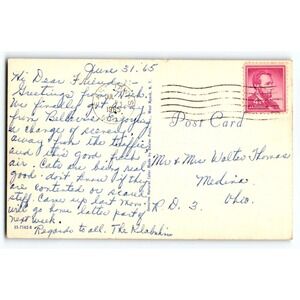 June 31 '65
Hi Dear Friends:
Greetings from Mich.
We finally got away
from Bellevue. Enjoying
a change of scenery
away from the traffic
and this good fresh
air. Cats are being real
good - don't know if they
are contented or scared
stiff. Came up last Mon.
will go home latter part
next week.
Regards to all. The
1965
Post Card
Mr & Mrs Walter Thomas
Medina
R.D. 3. Ohio.